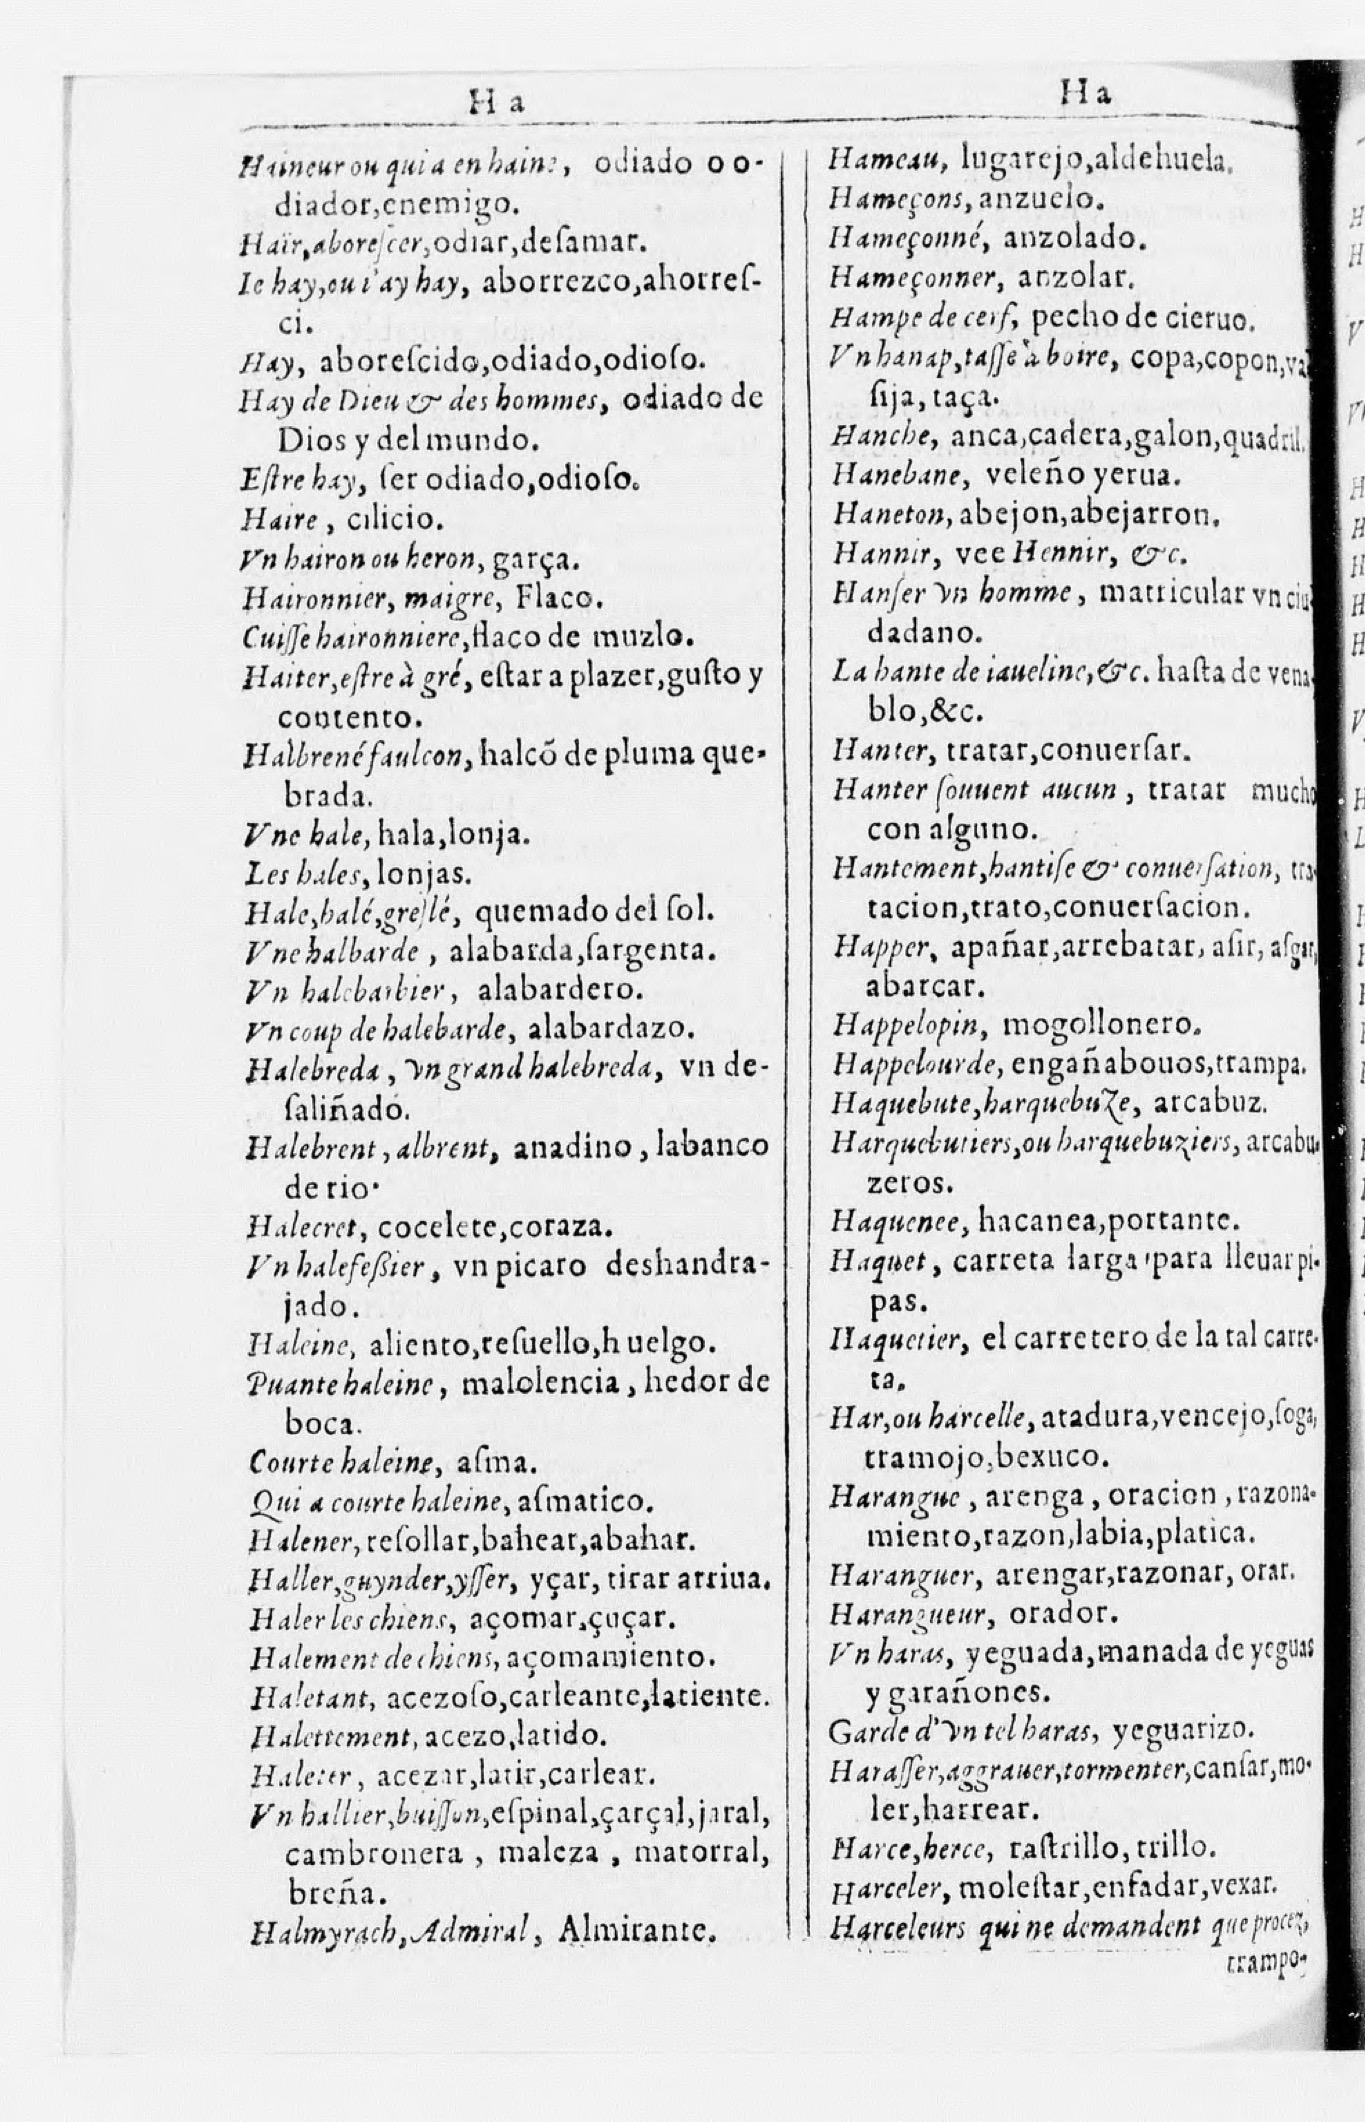 Ha
Haineur ou qui a en haine, odiado o o-
diador,enemigo.
Haïr,aboreſcer,odiar,deſamar.
Ie hay,ou i'ay hay, aborrezco,ahorreſ-
ci.
Hay, aboreſcido,odiado,odioſo.
Hay de Dieu & des hommes, odiado de
Dios y del mundo.
Eſtre hay, ſer odiado,odioſo.
Haire, cilicio.
Vn hairon ou heron, garça.
Haironnier, maigre, Flaco.
Cuiſſe haironniere,flaco de muzlo.
Haiter,eſtre à gré, eſtar a plazer,guſto y
contento.
Halbrené faulcon, halcõ de pluma que-
brada.
Vne hale, hala,lonja.
Les hales, lonjas.
Hale,halé,greſlé, quemado del ſol.
Vne halbarde, alabarda,ſargenta.
Vn halebarbier, alabardero.
Vn coup de halebarde, alabardazo.
Halebreda, vn grand halebreda, vn de-
ſaliñado.
Halebrent, albrent, anadino, labanco
de rio.
Halecret, cocelete,coraza.
Vn halefeßier, vn picaro deshandra-
jado.
Haleine, aliento,reſuello,huelgo.
Puante haleine, malolencia, hedor de
boca.
Courte haleine, aſma.
Qui a courte haleine, aſmatico.
Halener, reſollar,bahear,abahar.
Haller,guynder,yſſer, yçar, tirar arriua.
Haler les chiens, açomar,çuçar.
Halement de chiens, açomamiento.
Haletant, acezoſo,carleante,latiente.
Halettement, acezo,latido.
Haleter, acezar,latir,carlear.
Vn hallier,buiſſon,eſpinal,çarçal,jaral,
cambronera, maleza, matorral,
breña.
Halmyrach, Admiral, Almirante.
Ha
Hameau, lugarejo,aldehuela.
Hameçons, anzuelo.
Hameçonné, anzolado.
Hameçonner, anzolar.
Hampe de cerf, pecho de cieruo.
Vn hanap,taſſe à boire, copa,copon,va
ſija, taça.
Hanche, anca,cadera,galon,quadril.
Hanebane, veleño yerua.
Haneton, abejon,abejarron.
Hannir, vee Hennir, &c.
Hanſer vn homme, matricular vn ciu
dadano.
La hante de iaueline,&c. haſta de vena
blo,&c.
Hanter, tratar,conuerſar.
Hanter ſouuent aucun, tratar mucho
con alguno.
Hantement,hantiſe & conuerſation, tra-
tacion,trato,conuerſacion.
Happer, apañar,arrebatar, aſir, aſgar,
abarcar.
Happelopin, mogollonero.
Happelourde, engañabouos,trampa.
Haquebute,harquebuze, arcabuz.
Harquebutiers,ou harquebuziers, arcabu-
zeros.
Haquenee, hacanea,portante.
Haquet, carreta larga para lleuar pi-
pas.
Haquetier, el carretero de la tal carre-
ta.
Har,ou harcelle, atadura,vencejo,ſoga,
tramojo,bexuco.
Harangue, arenga, oracion, razona-
miento,razon,labia,platica.
Haranguer, arengar,razonar, orar.
Harangueur, orador.
Vn haras, yeguada,manada de yeguas
y garañones.
Garde d'vn tel haras, yeguarizo.
Haraſſer,aggrauer,tormenter,canſar,mo-
ler,harrear.
Harce,herce, raſtrillo, trillo.
Harceler, moleſtar,enfadar,vexar.
Harceleurs qui ne demandent que procez,
trampo-